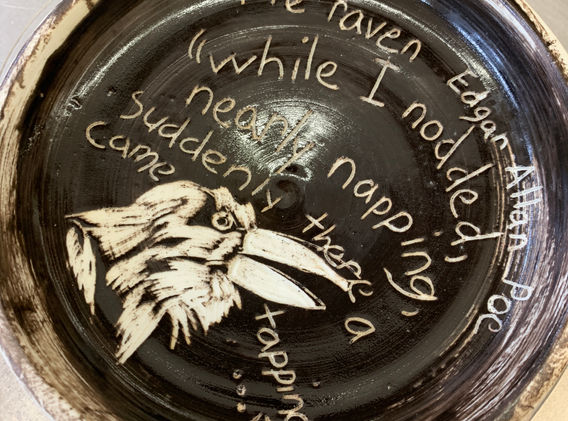 The raven Edgar Allan Poe
"while I nodded,
nearly napping,
suddenly there a
came
tapping..."